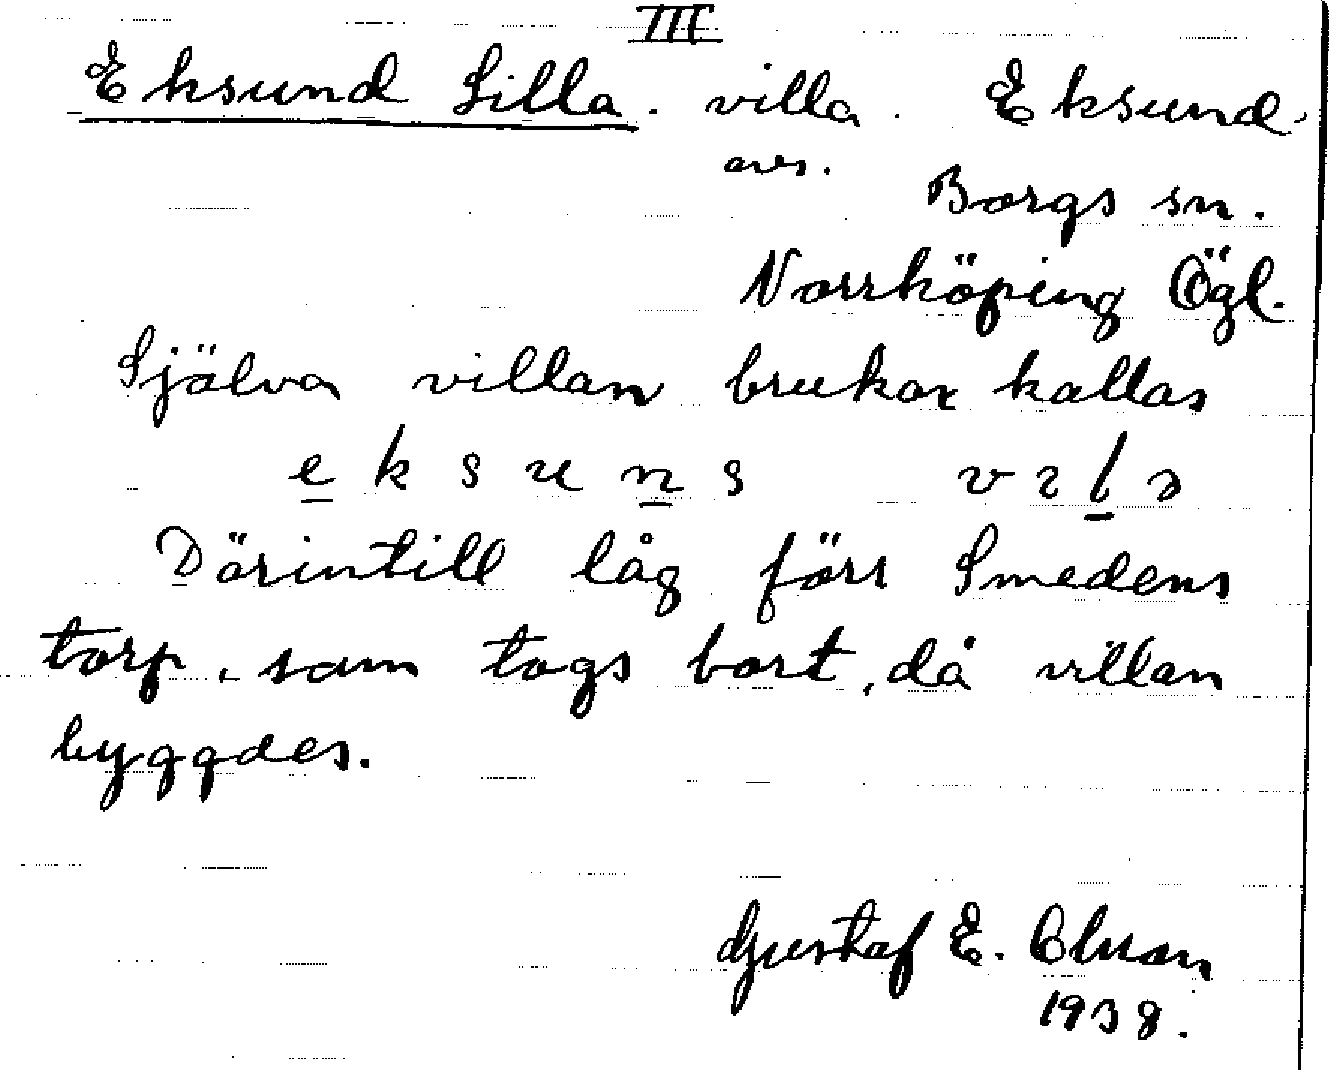 III
Eksund Lilla. villa. Eksund.
avs.
Borgs sn.
Norrköping Ögl.
Själva villan brukar kallas
e k s u n s v ɩ l ə
Därintill låg förr Smedens
torp, som togs bort, då villan
byggdes.
Gustaf E.
1938.